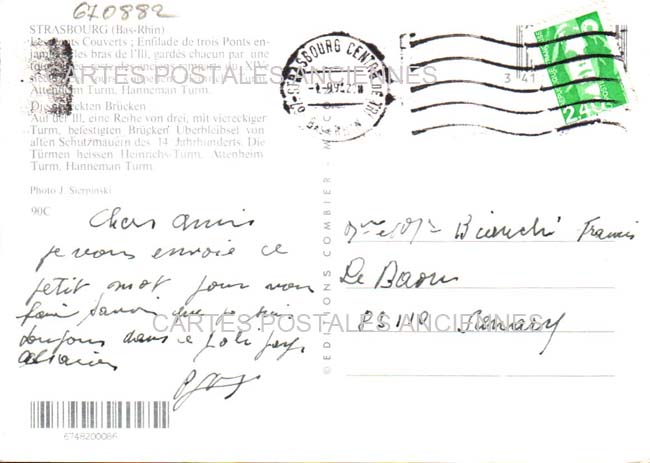 670882
STRASBOURG (Bas-Rhin)
Les Ponts Couverts ; Enfilade de trois Ponts en-
jambant les bras de l'Ill, gardés chacun par une
XIV
CARTES POSTALES ANCIENNES
Turm, Hanneman Turm.
Die gedeckten Brücken
Auf der Ill, eine Reihe von drei, mit viereckiger
Turm, befestigten Brücken Überbleibsel von
alten Schutzmauern des 14 Jahrhunderts. Die
Türmen heissen Heinrichs-Turm, Attenheim
Turm, Hanneman Turm.
Photo J. Sierpinski
90C
Chers amis
je vous envoie ce
petit mot pour vous
faire savoir que je suis
toujours dans ce joli pays
alsacien
6748200086
© EDITIONS COMBIER
67-STRASBOURG CENTRE
BAS-RHIN
3 41
Mme et Mr Bianchi Francis
Le Baou
CARTES POSTALES ANCIENNES
83110 Sanary